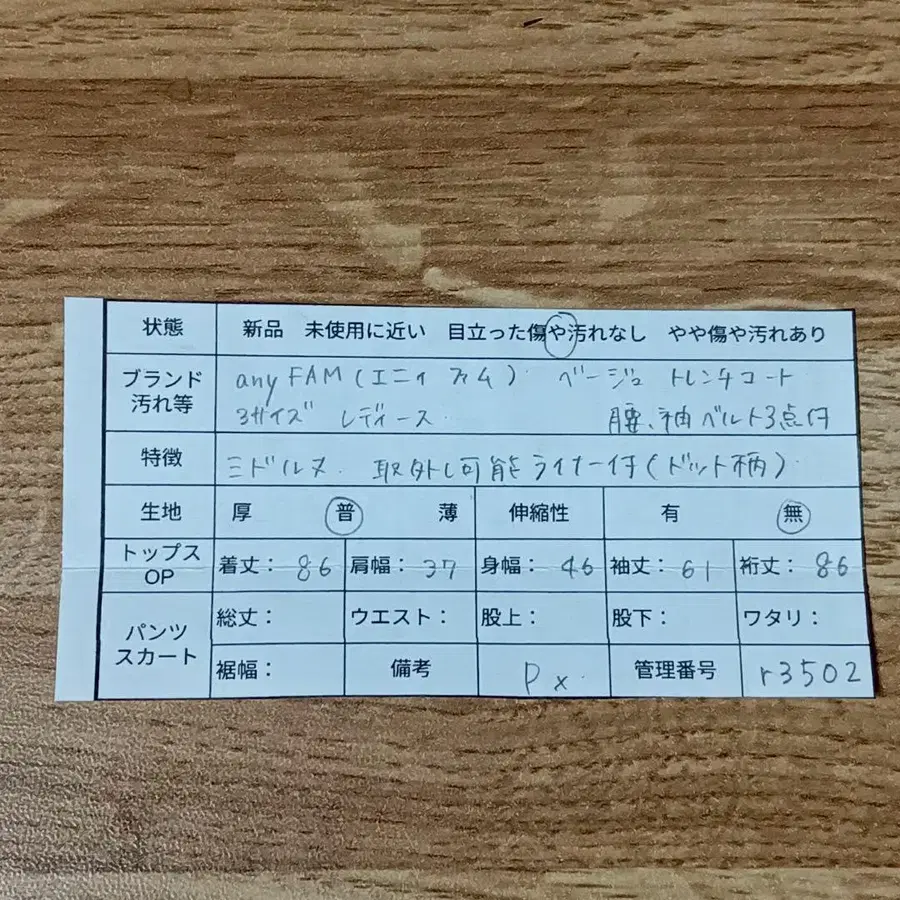 状態 新品 未使用に近い 目立った傷や汚れなし やや傷や汚れあり
ブランド 汚れ等 any FAM(エニィ ファム) ベージュ トレンチコート
3サイズ レディース 腰、袖ベルト3点付
特徴 ミドル丈 取外し可能ライナー付(ドット柄)
生地 厚 普 薄 伸縮性 有 無
トップス OP 着丈: 86 肩幅: 37 身幅: 46 袖丈: 61 裄丈: 86
パンツ スカート 総丈: ウエスト: 股上: 股下: ワタリ:
裾幅: 備考 Px 管理番号 r3502